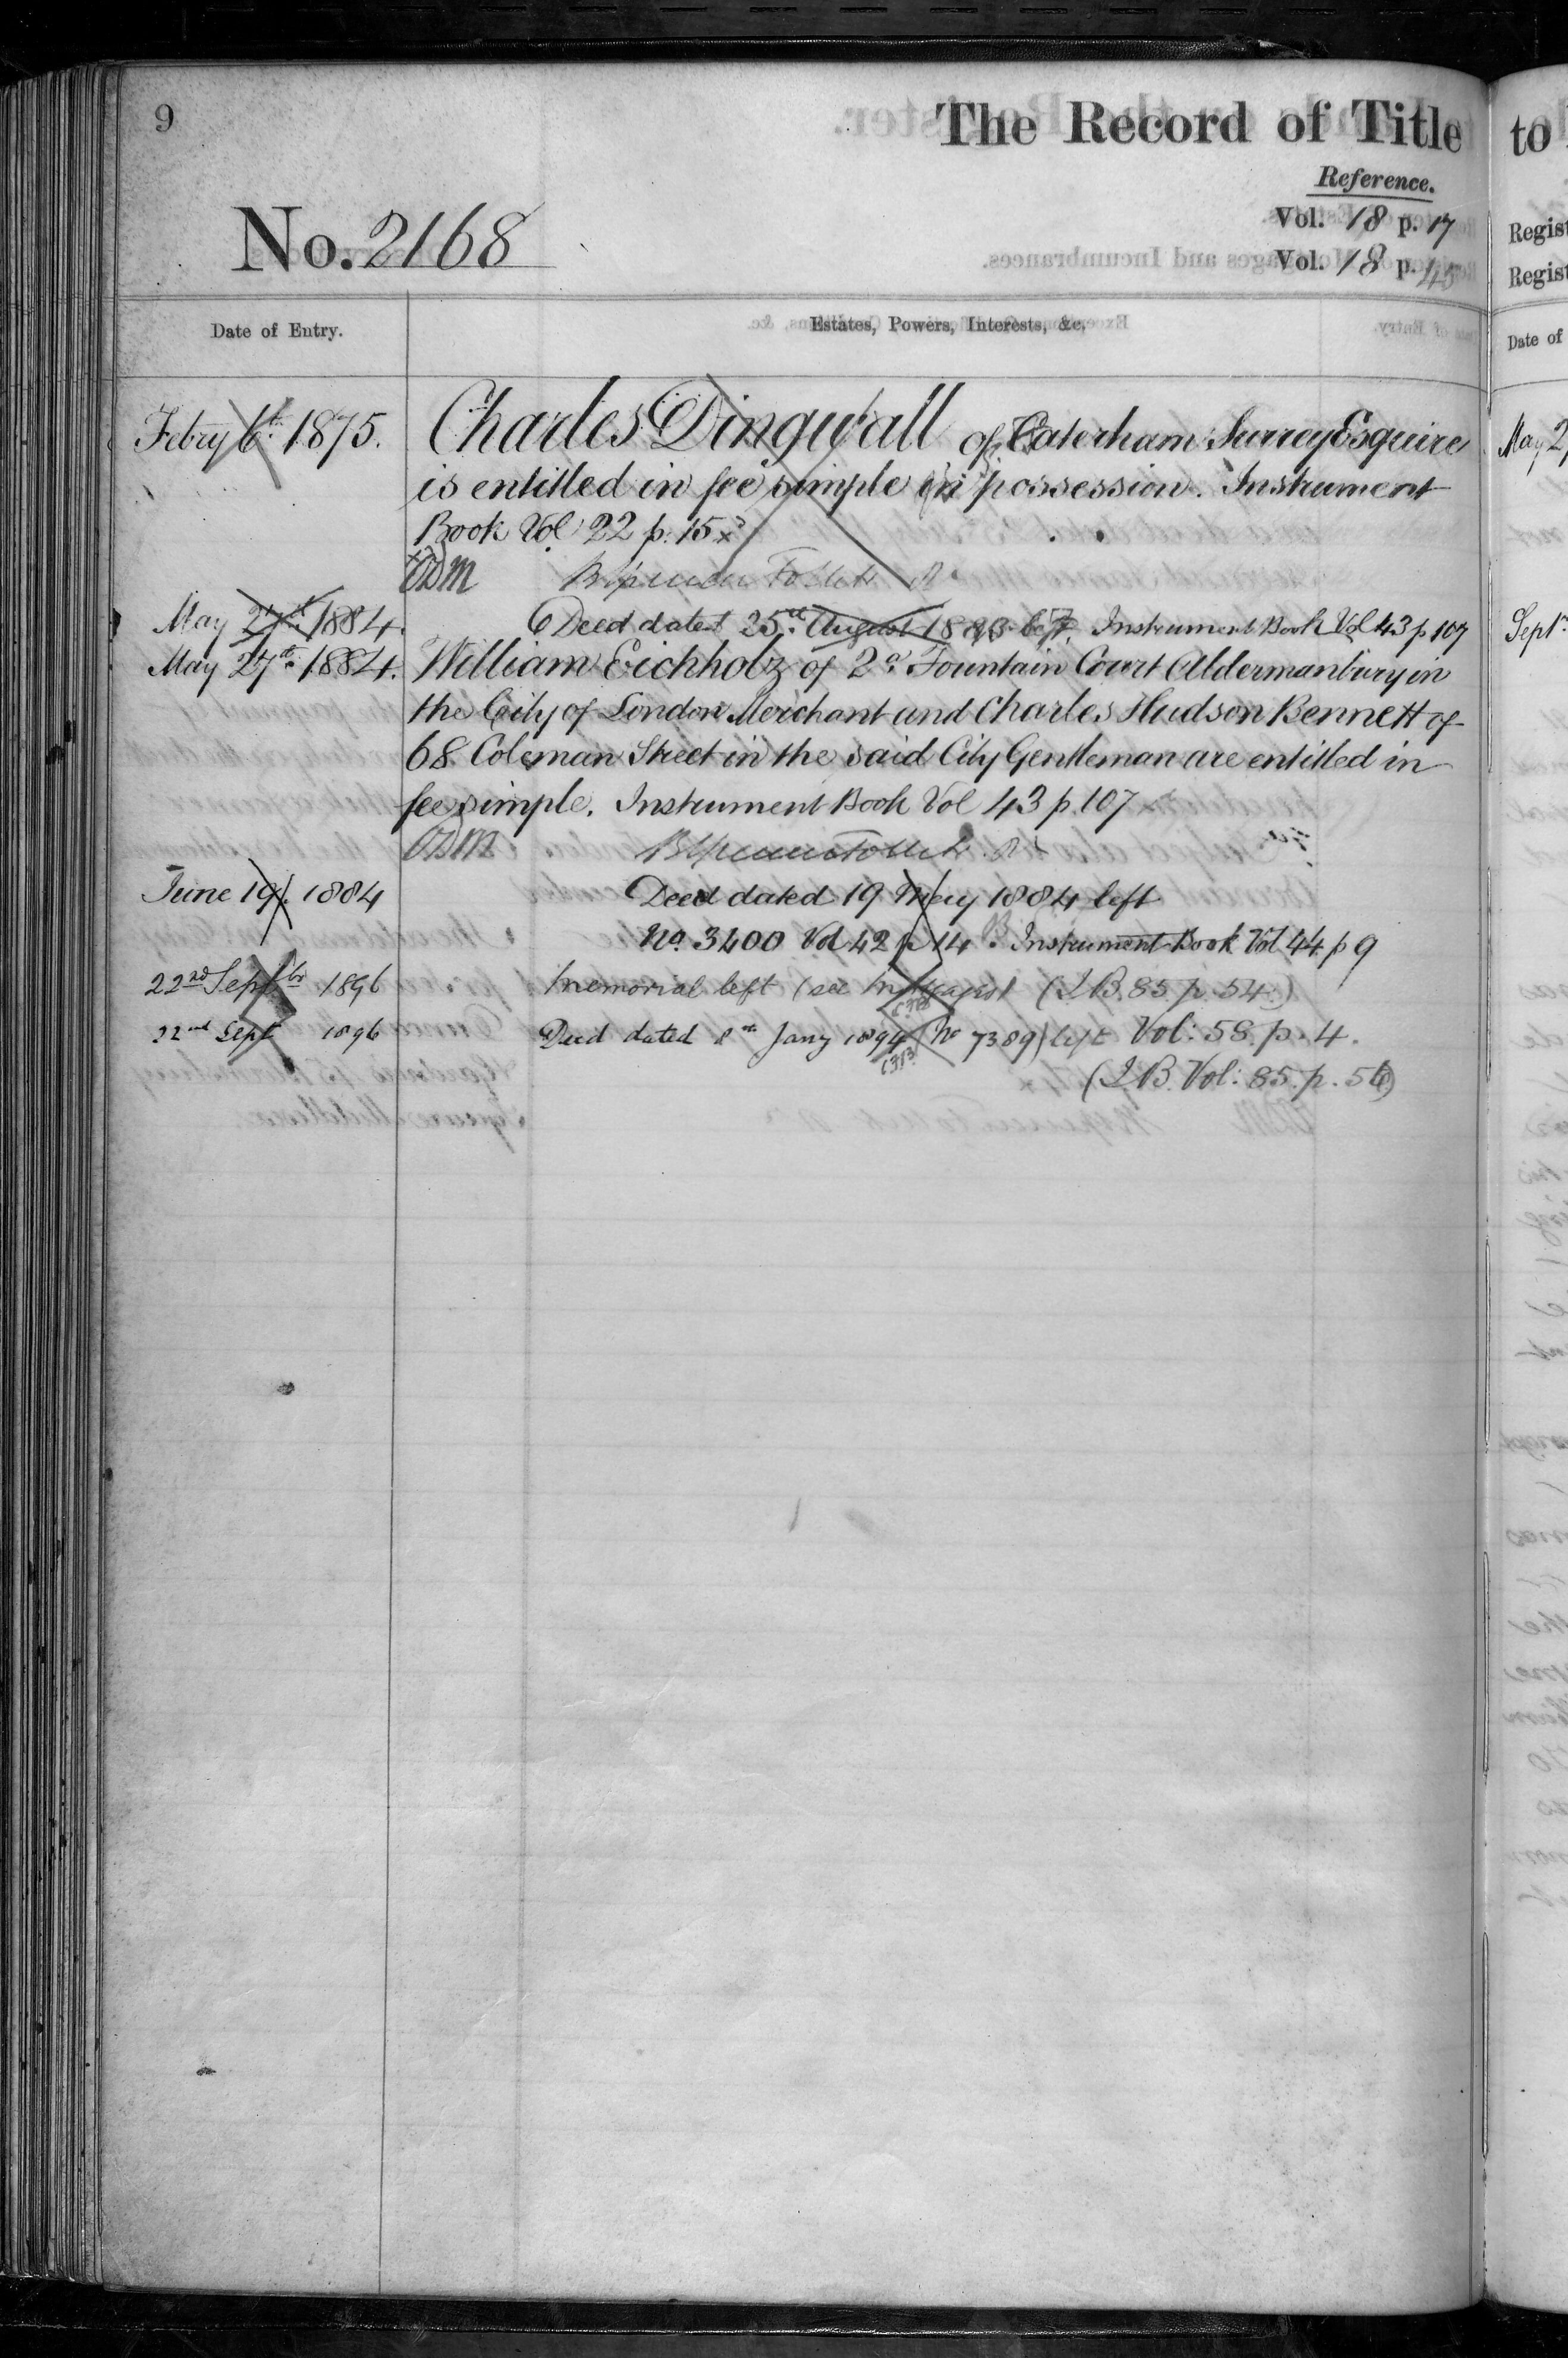 9
The Record of Title
Reference.
No. 2168
Vol. 18 p. 17
Vol. 18 p. 45
Date of Entry.
Estates, Powers, Interests, &c.
Febry 6th 1875.
Charles Dingwall of Caterham Surrey Esquire
is entitled in fee simple in possession. Instrument
Book Vol 22 p. 15
May 27th 1884.
Deed dated 25th August 1883 left. Instrument Book Vol 43 p 107
May 27th 1884.
William Eichholz of 2a Fountain Court Aldermanbury in
the City of London Merchant and Charles Hudson Bennett of
68 Coleman Street in the said City Gentleman are entitled in
fee simple. Instrument Book Vol 43 p. 107
June 19. 1884
Deed dated 19 May 1884 left
No. 3400 Vol 42 p 14. Instrument Book Vol 44 p 9
22nd Septbr 1896
Memorial left (see (I.B. 85. p. 54.)
22nd Sept 1896
Deed dated 8th Jany 1894 (No 7389) left Vol: 58. p. 4.
(I.B. Vol: 85. p. 56)
to
Regist
Regist
Date of
May 2
Septr